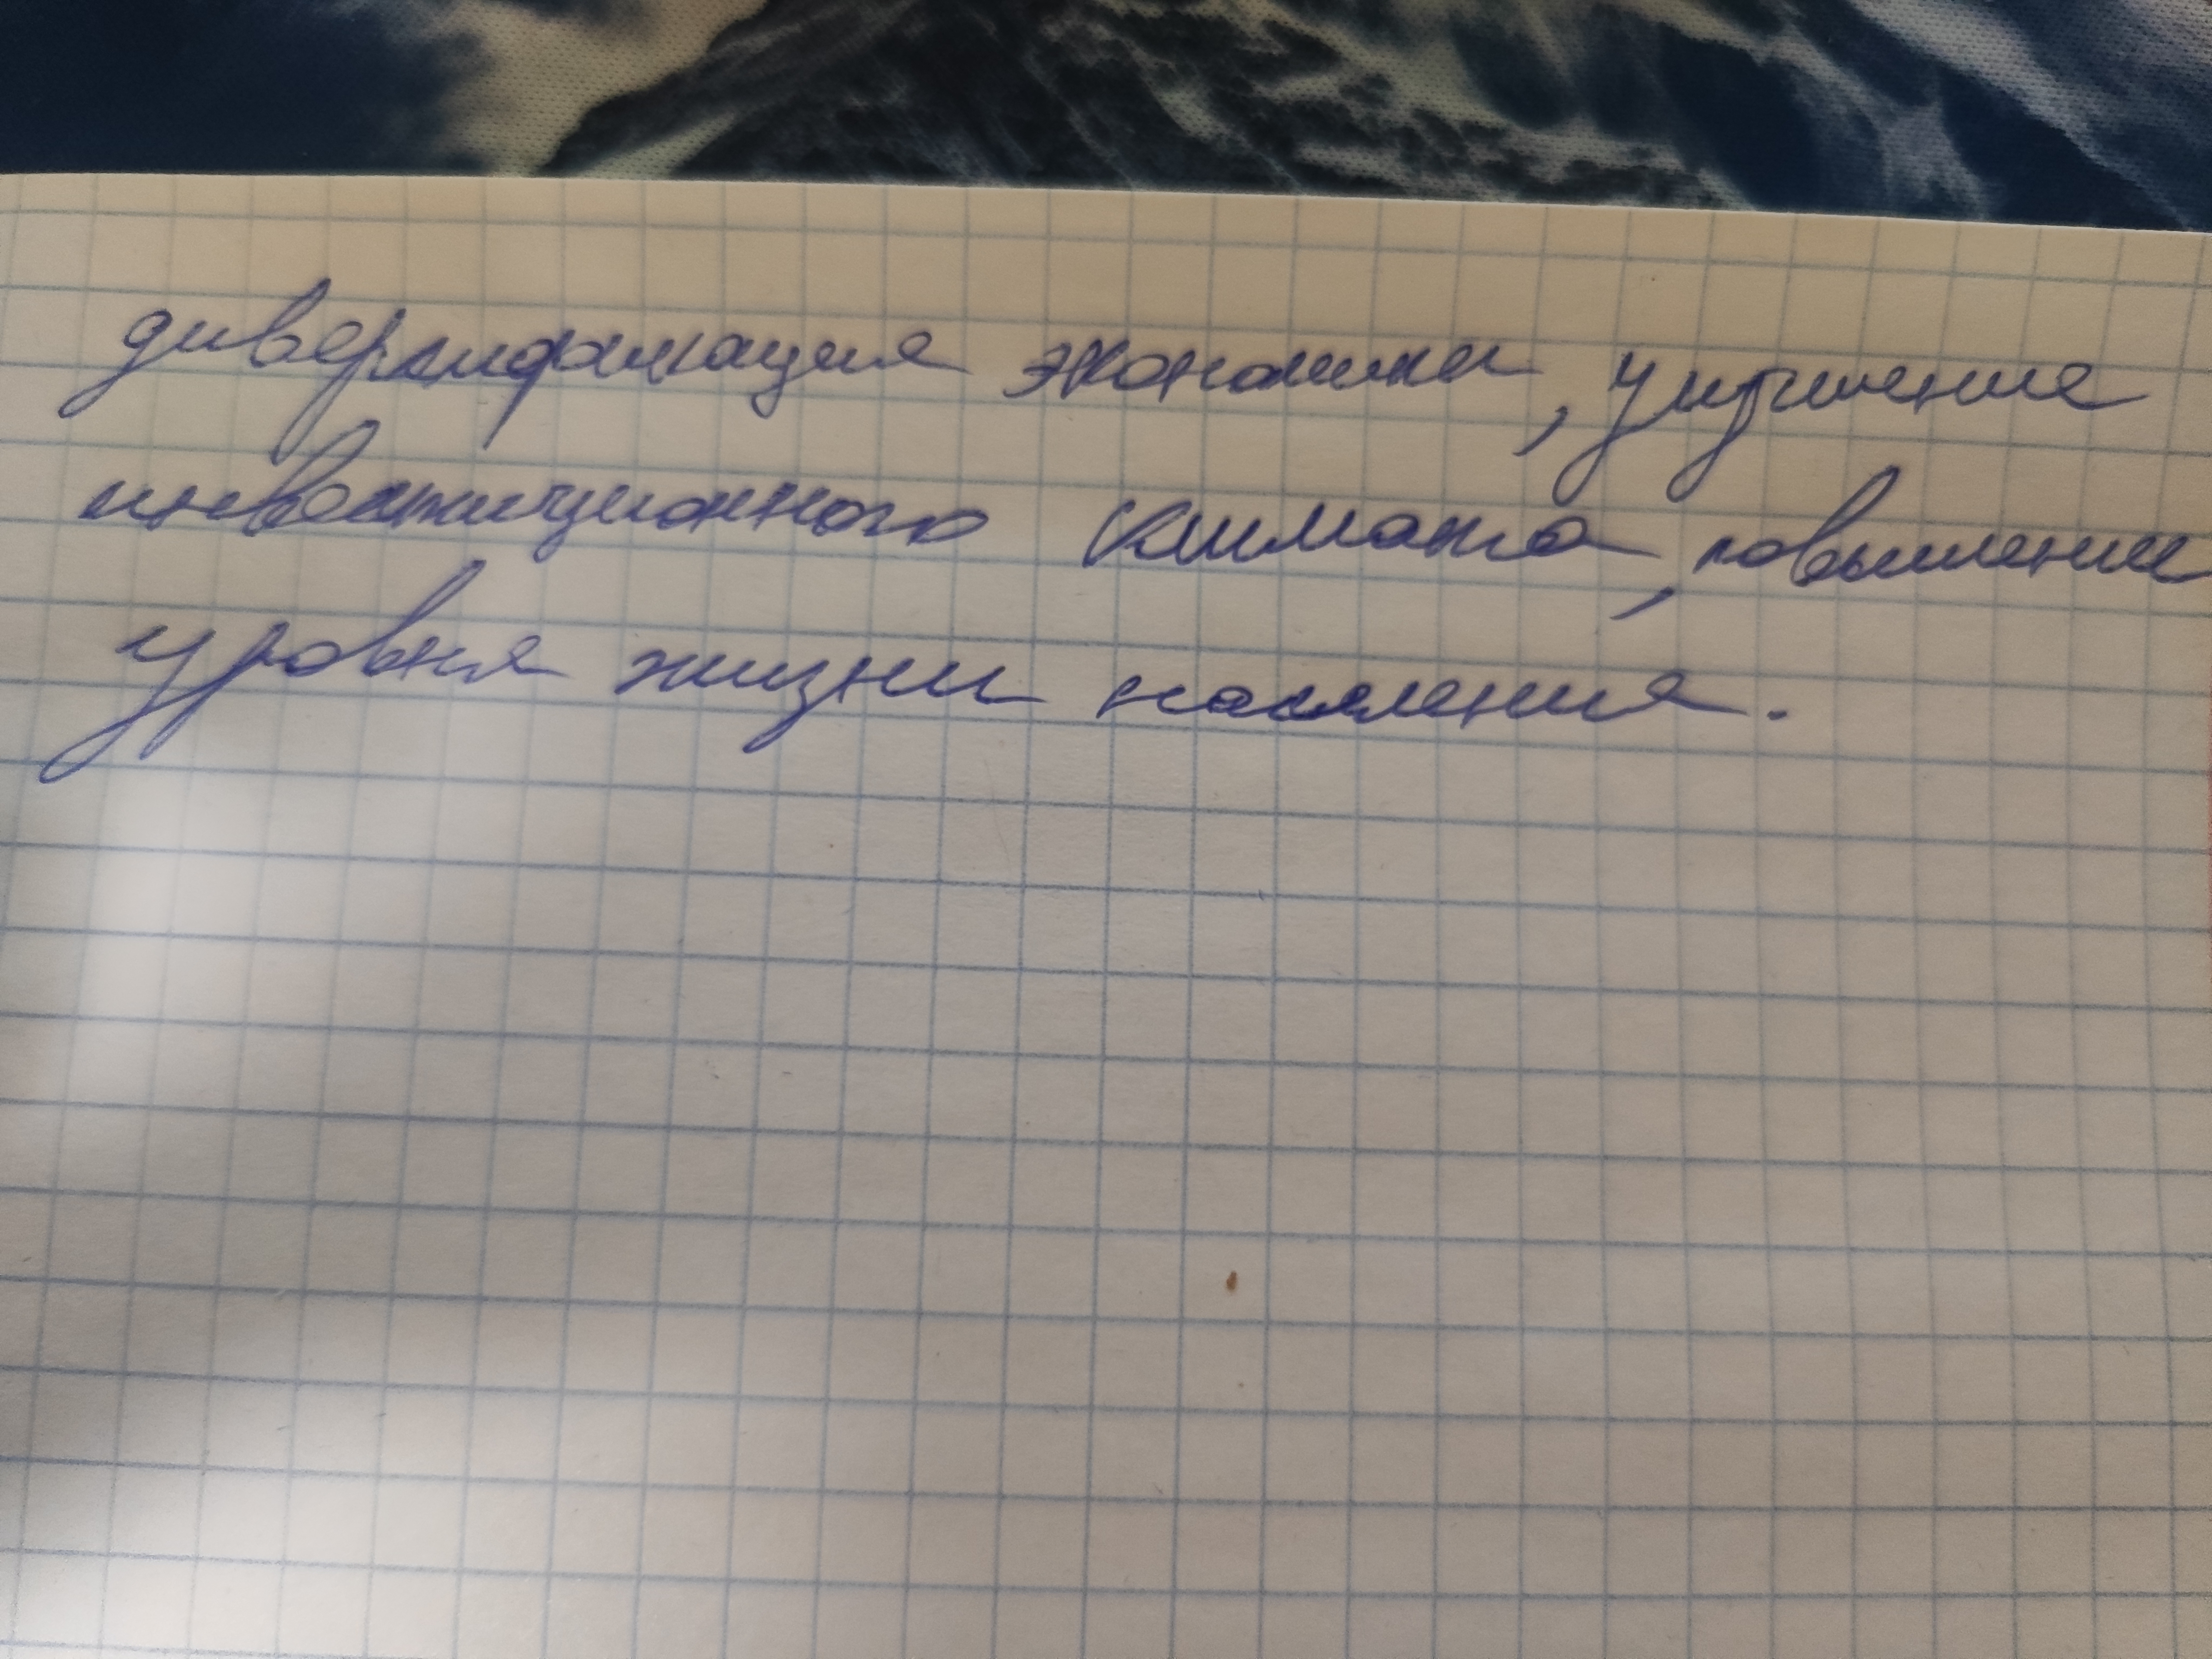 диверсификация экономики, улучшение
инвестиционного климата, повышение
уровня жизни населения.